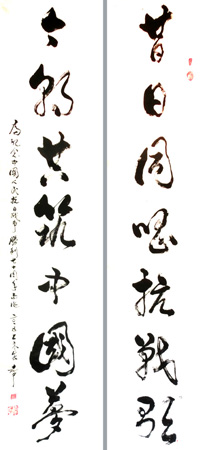 昔日同唱抗戰歌
今朝共筑中國夢
為紀念中國人民抗日戰爭勝利七十周年